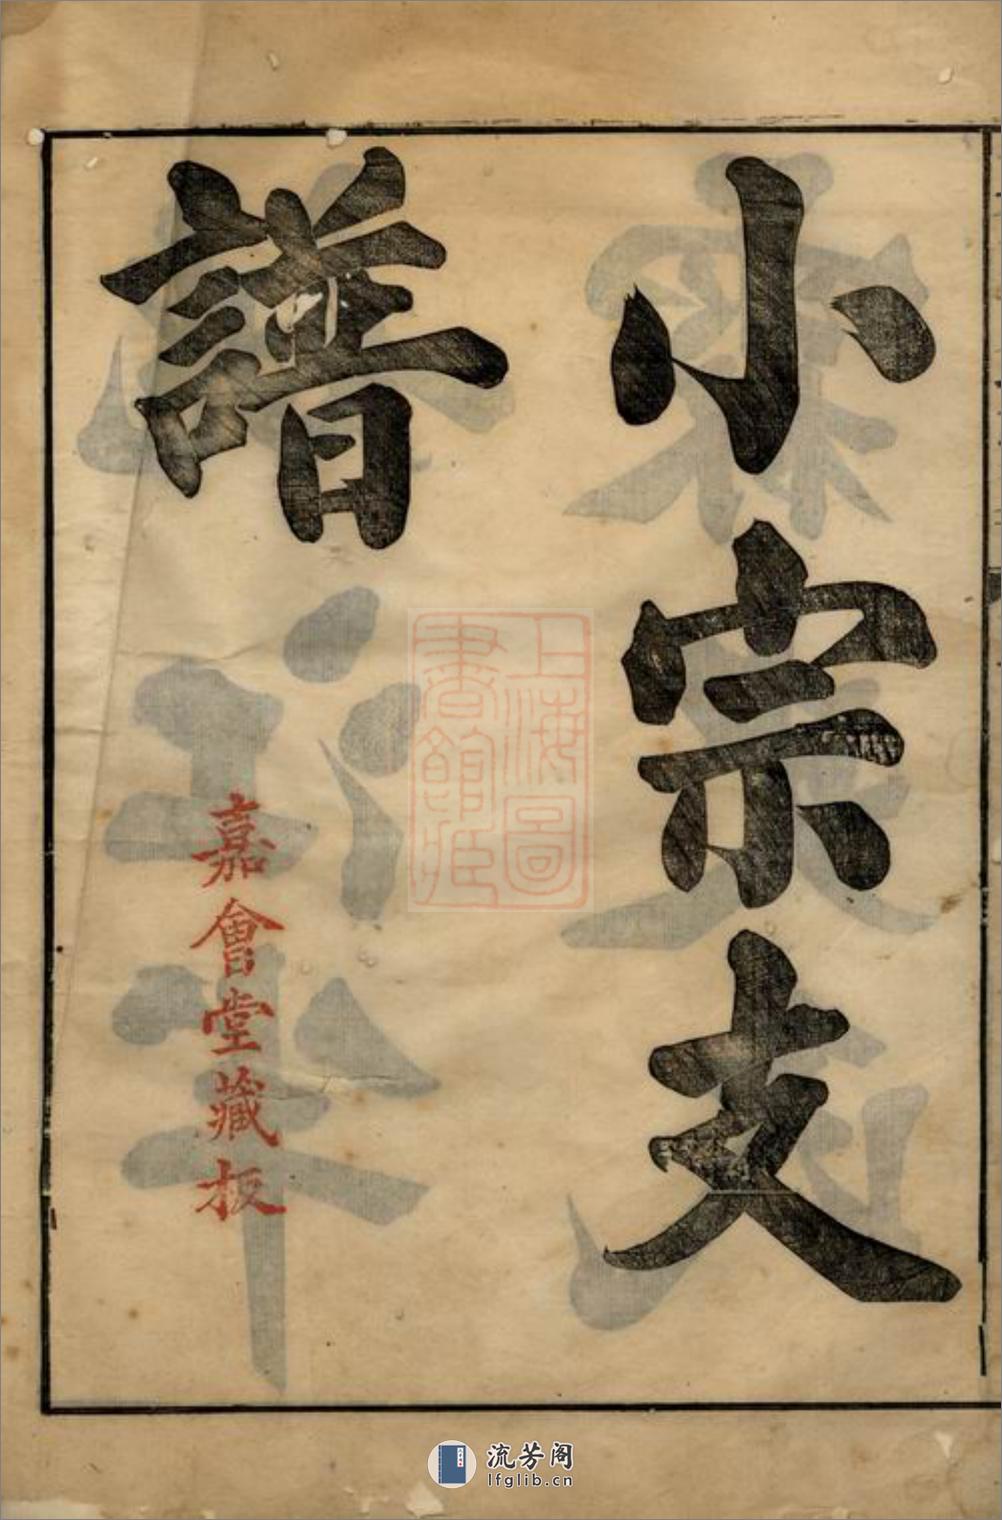 小宗支
譜
嘉會堂藏板
上海圖
書館藏
流芳阁
lfglib.cn